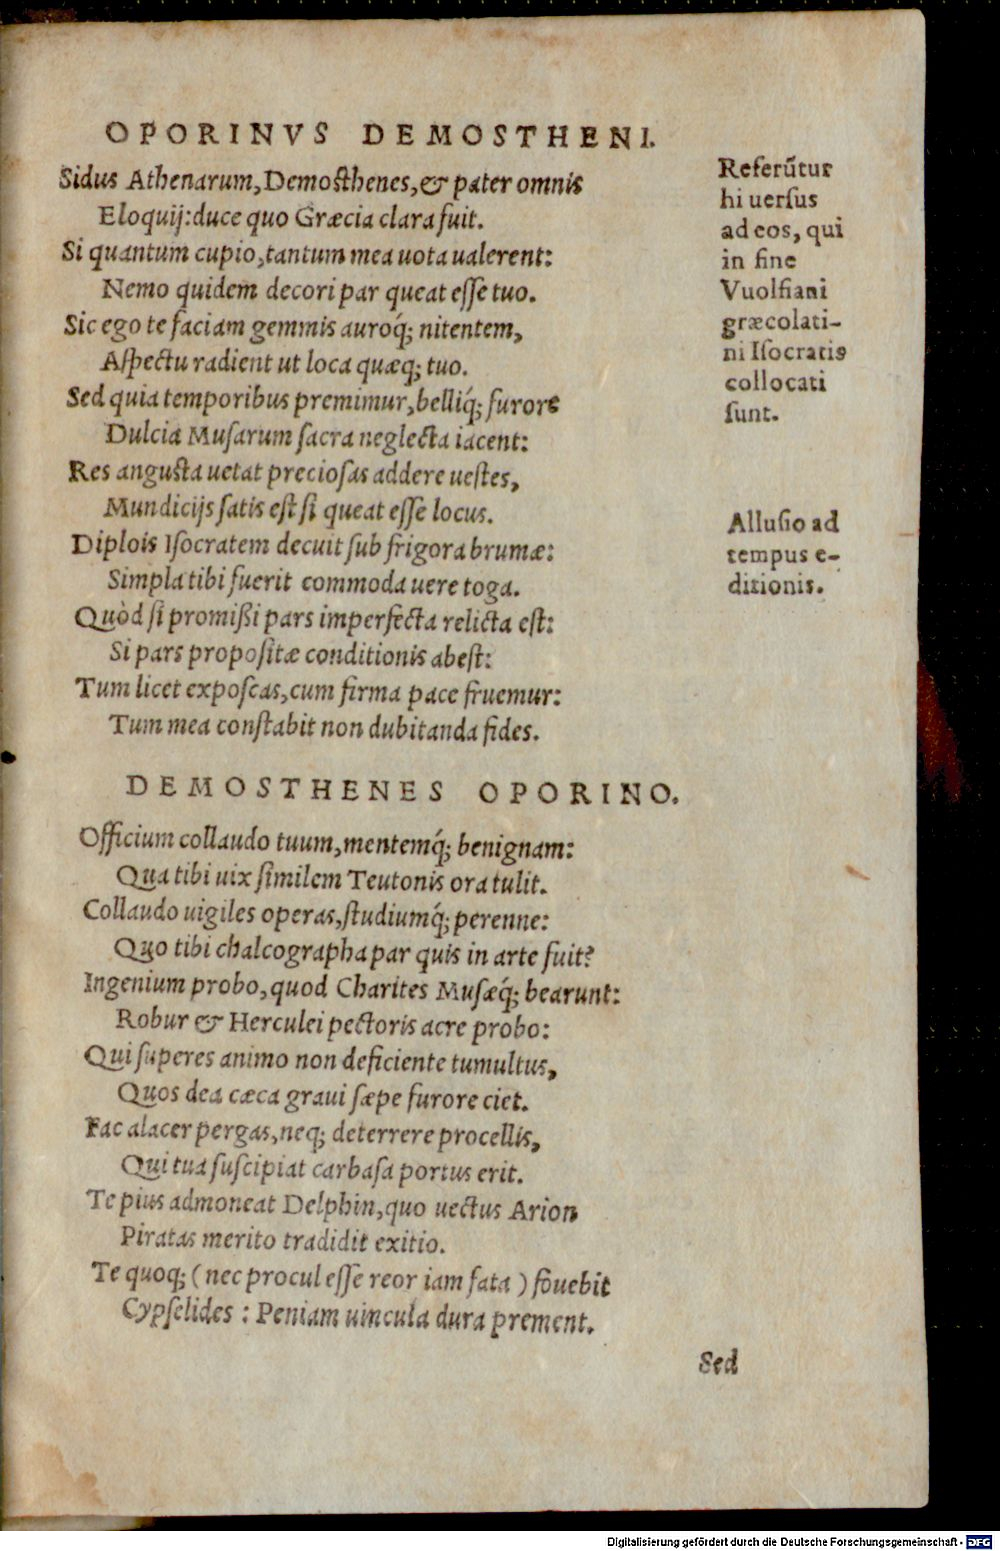 OPORINVS DEMOSTHENI.
Sidus Athenarum, Demosthenes, & pater omnis
Eloquij: duce quo Græcia clara fuit.
Si quantum cupio, tantum mea uota ualerent:
Nemo quidem decori par queat esse tuo.
Sic ego te faciam gemmis auroq́; nitentem,
Aspectu radient ut loca quæq; tuo.
Sed quia temporibus premimur, belliq́; furore
Dulcia Musarum sacra neglecta iacent:
Res angusta uetat preciosas addere uestes,
Mundicijs satis est si queat esse locus.
Diplois Isocratem decuit sub frigora brumæ:
Simpla tibi fuerit commoda uere toga.
Quòd si promißi pars imperfecta relicta est:
Si pars propositæ conditionis abest:
Tum licet exposcas, cum firma pace fruemur:
Tum mea constabit non dubitanda fides.
Referũtur
hi uersus
ad eos, qui
in fine
Vuolfiani
græcolati-
ni Isocratis
collocati
sunt.
Allusio ad
tempus e-
ditionis.
DEMOSTHENES OPORINO.
Officium collaudo tuum, mentemq́; benignam:
Qua tibi uix similem Teutonis ora tulit.
Collaudo uigiles operas, studiumq́; perenne:
Quo tibi chalcographa par quis in arte fuit?
Ingenium probo, quod Charites Musæq́; bearunt:
Robur & Herculei pectoris acre probo:
Qui superes animo non deficiente tumultus,
Quos dea cæca graui sæpe furore ciet.
Fac alacer pergas, neq; deterrere procellis,
Qui tua suscipiat carbasa portus erit.
Te pius admoneat Delphin, quo uectus Arion
Piratas merito tradidit exitio.
Te quoq; (nec procul esse reor iam fata) fouebit
Cypselides: Peniam uincula dura prement.
Sed
Digitalisierung gefördert durch die Deutsche Forschungsgemeinschaft - DFG